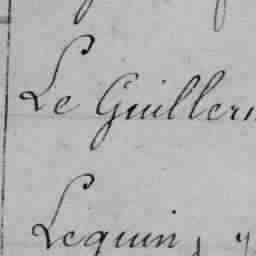 Le Guiller
Lequin,